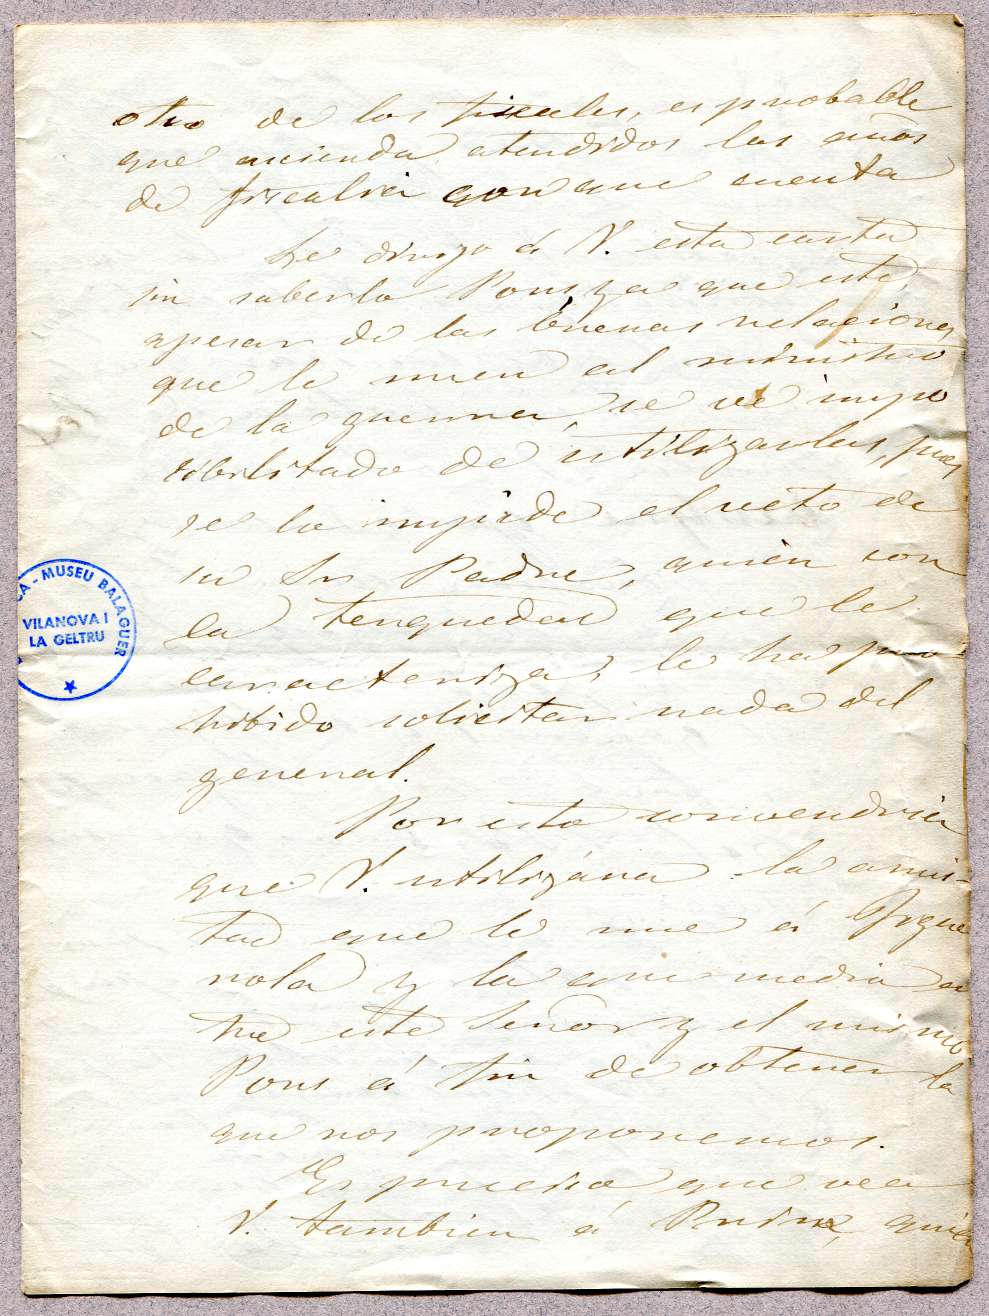 otro de los fiscales, es probable
que ascienda atendidos los años
de fiscalia con que cuenta
Le dirijo á V. esta carta
sin saberlo Pons, ya que este,
apesar de las buenas relaciones
que le unen al ministro
de la guerra, se vé impo
sibilitado de utilizarlas, pues
se lo impide el veto de
su Sr Padre, quien con
la terquedad que le
caracteriza, le ha pro
hibido solicitar nada del
general.
Por esto convendria
que V. utilizára la amis-
tad que le une á Figue
rola y la que media en
tre este Señor y el mismo
Pons á fin de obtener lo
que nos proponemos.
Es preciso que vea
V. tambien á Prim, quien
CA - MUSEU BALAGUER
VILANOVA I
LA GELTRU